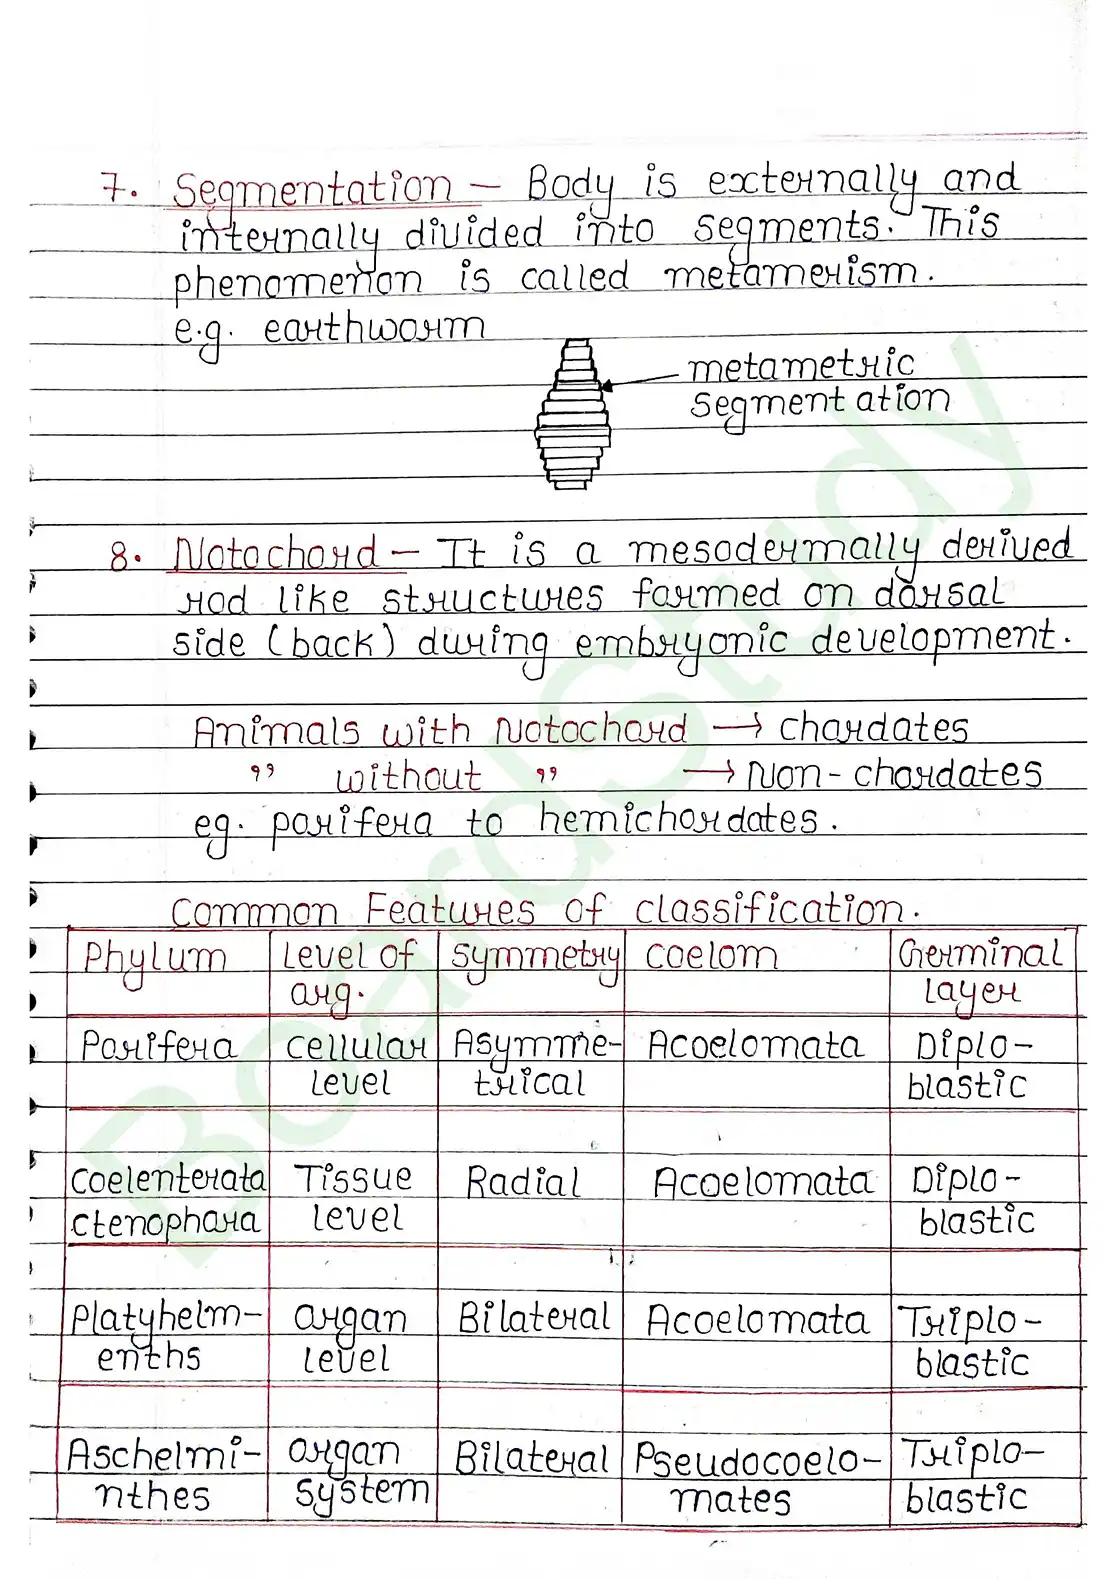 7. Segmentation - Body is externally and
internally divided into segments. This
phenomenon is called metamerism.
e.g. earthworm
metametric
segmentation
8. Notochord - It is a mesodermally derived
rod like structures formed on dorsal
side (back) during embryonic development.
Animals with Notochord → chordates
" without " → Non-chordates
eg. porifera to hemichordates.
Common Features of classification.
Phylum Level of symmetry coelom Germinal
org. layer
Porifera cellular Asymme- Acoelomata Diplo-
level trical blastic
Coelenterata Tissue Radial Acoelomata Diplo-
ctenophora level blastic
Platyhelm- organ Bilateral Acoelomata Triplo-
enths level blastic
Aschelmi- organ Bilateral Pseudocoelo- Triplo-
nthes system mates blastic
BoardStudy